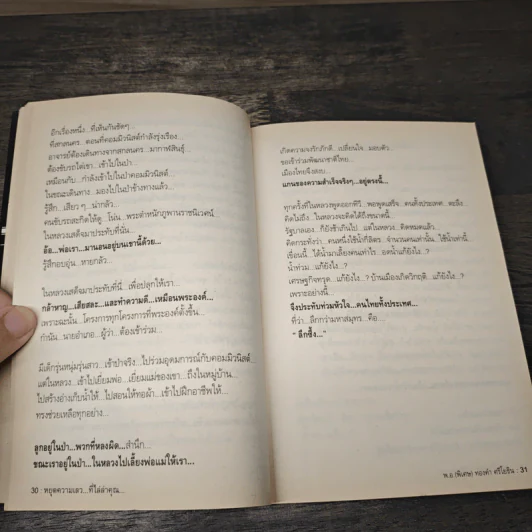 อีกเรื่องหนึ่ง...ที่เห็นกันชัดๆ...
ที่สกลนคร...ตอนที่คอมมิวนิสต์กำลังรุ่งเรือง...
อาจารย์ต้องเดินทางจากสกลนคร...มากาฬสินธุ์
ต้องขับรถไต่เขา...ภู...เข้าไปในป่า...
เหมือนกับ...กำลังเข้าไปในป่าคอมมิวนิสต์
ในขณะเดินทาง...มองไปในป่าข้างทางแล้ว...
รู้สึก...เสียวๆ...น่ากลัว...
คนขับรถสะกิดให้ดู...โน่น...พระตำหนักภูพานราชนิเวศน์
ในหลวงเสด็จมาประทับที่นั่น...
อ้อ...พ่อเรา...มานอนอยู่บนเขานี้ด้วย...
รู้สึกอบอุ่น...หายกลัว...
ในหลวงเสด็จมาประทับที่นี่...เพื่อปลุกให้เรา...
กล้าหาญ...เสียสละ...และทำความดี...เหมือนพระองค์...
เพราะฉะนั้น...โครงการทุกโครงการที่พระองค์ตั้งขึ้น
กำนัน...นายอำเภอ...ผู้ว่า...ต้องเข้าร่วม...
มีเด็กรุ่นหนุ่มรุ่นสาว...เข้าป่าจริง...ไปร่วมอุดมการณ์กับคอมมิวนิสต์
แต่ในหลวง...เข้าไปเยี่ยมพ่อ...เยี่ยมแม่ของเขา...ถึงในหมู่บ้าน...
ไปสร้างอ่างเก็บน้ำให้...ไปสอนให้ทอผ้า...เข้าไปฝึกอาชีพให้...
ทรงช่วยเหลือทุกอย่าง...
ลูกอยู่ในป่า...พวกที่หลงผิด...สำนึก...
ขณะเราอยู่ในป่า...ในหลวงไปเลี้ยงพ่อแม่ให้เรา...
30 : หยุดความเลว...ที่ไล่ล่าคุณ...
เกิดความจงรักภักดี...เปลี่ยนใจ...มอบตัว...
ขอเข้าร่วมพัฒนาชาติไทย...
เมืองไทยจึงสงบ...
แกนของความสำเร็จจริงๆ...อยู่ตรงนี้...
ทุกครั้งที่ในหลวงพูดออกทีวี...พอพูดเสร็จ...คนทั้งประเทศ...ตะลึง...
คิดไม่ถึง...ในหลวงจะคิดได้ถึงขนาดนี้...
รัฐบาลเอง...ก็ยังช้าเกินไป...แต่ในหลวง...คิดหมดแล้ว...
คิดกระทั่งว่า...คนหนึ่งใช้น้ำกี่ลิตร...จำนวนคนเท่านั้น...ใช้น้ำเท่านี้
เขื่อนนี้...ได้น้ำมาเลี้ยงคนเท่าไร...อดน้ำแก้ยังไง...?
น้ำท่วม...แก้ยังไง...?
เศรษฐกิจทรุด...แก้ยังไง...? บ้านเมืองเกิดวิกฤติ...แก้ยังไง...?
เพราะอย่างนี้...
จึงประทับท่วมหัวใจ...คนไทยทั้งประเทศ...
ที่ว่า...ลึกกว่ามหาสมุทร...คือ...
“ ลึกซึ้ง...”
พ.อ.(พิเศษ) ทองคำ ศรีโยธิน : 31